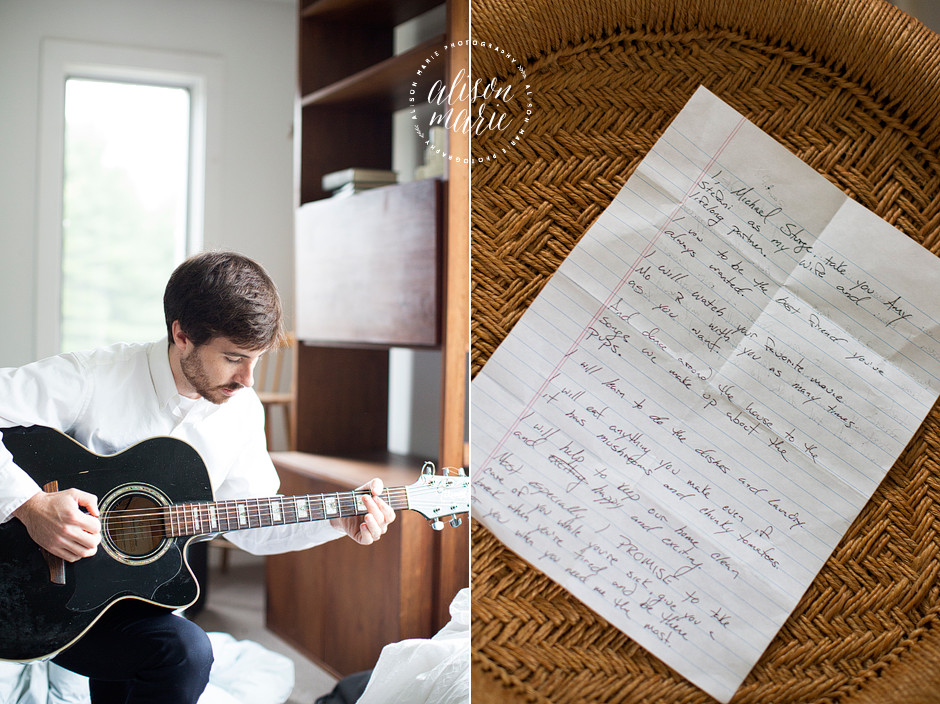 alison
marie
ALISON MARIE PHOTOGRAPHY
ALISON MARIE PHOTOGRAPHY
I, Michael take you Amy
Stefani as my wife and
lifelong partner.
I vow to be the best friend you've
always wanted.
I will watch your favorite movie
No. 2 with you as many times
as you want.
And dance around the house to the
songs we make up about the
pups.
I will learn to do the dishes and laundry
I will eat anything you make even if
it has mushrooms and chunky tomatoes.
I will help to keep our home clean
and happy and exciting
Most especially I PROMISE to take
care of you while you're sick, give you a
when you're tired and be there
when you need me the most.